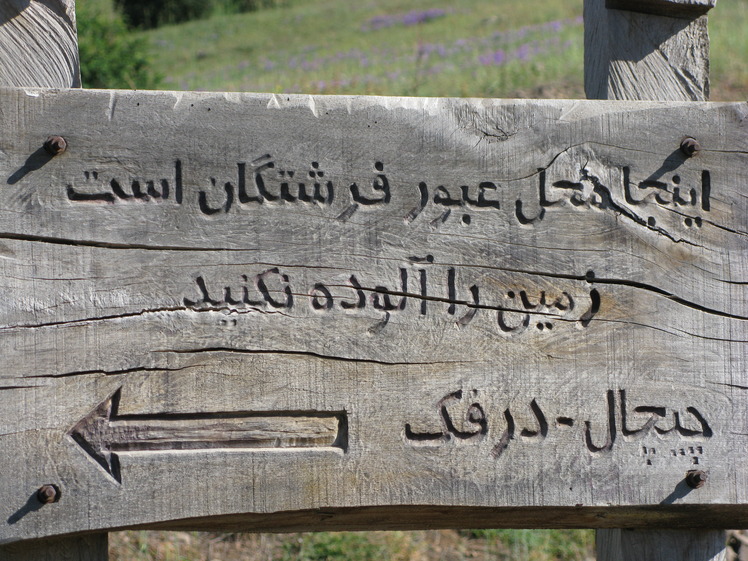 اینجا محل عبور فرشتگان است
زمین را آلوده نکنید
چیچال - درفک